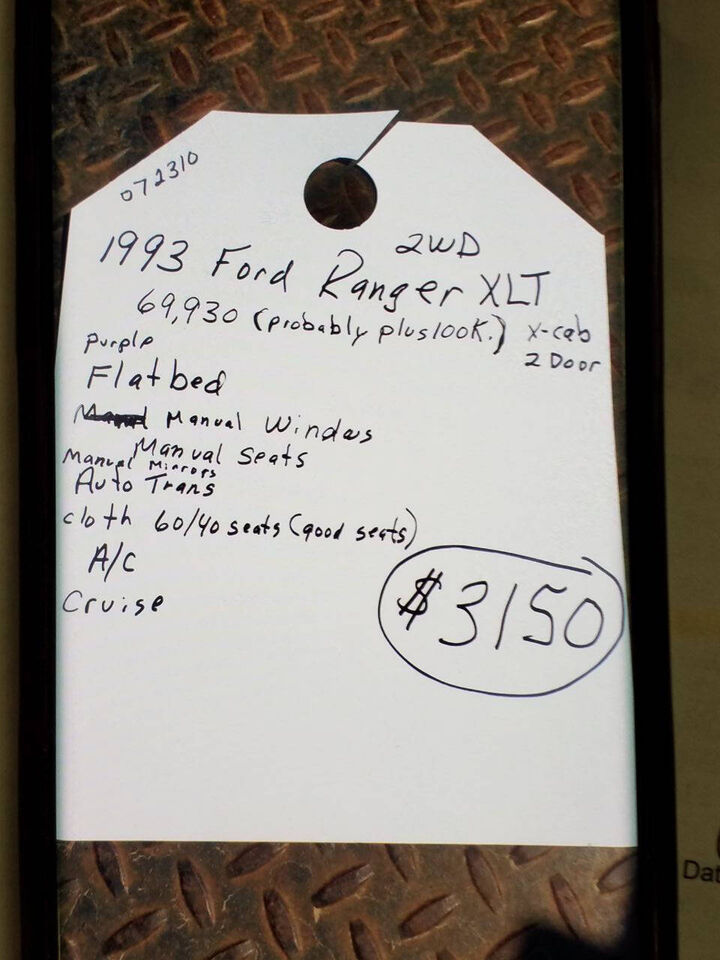 072310
2WD
1993 Ford Ranger XLT
69,930 (probably plus 100K.) X-cab
2 Door
Purple
Flatbed
Manual Windows
Manual Seats
Manual Mirrors
Auto Trans
cloth 60/40 seats (good seats)
A/C
Cruise
$3150
Dat